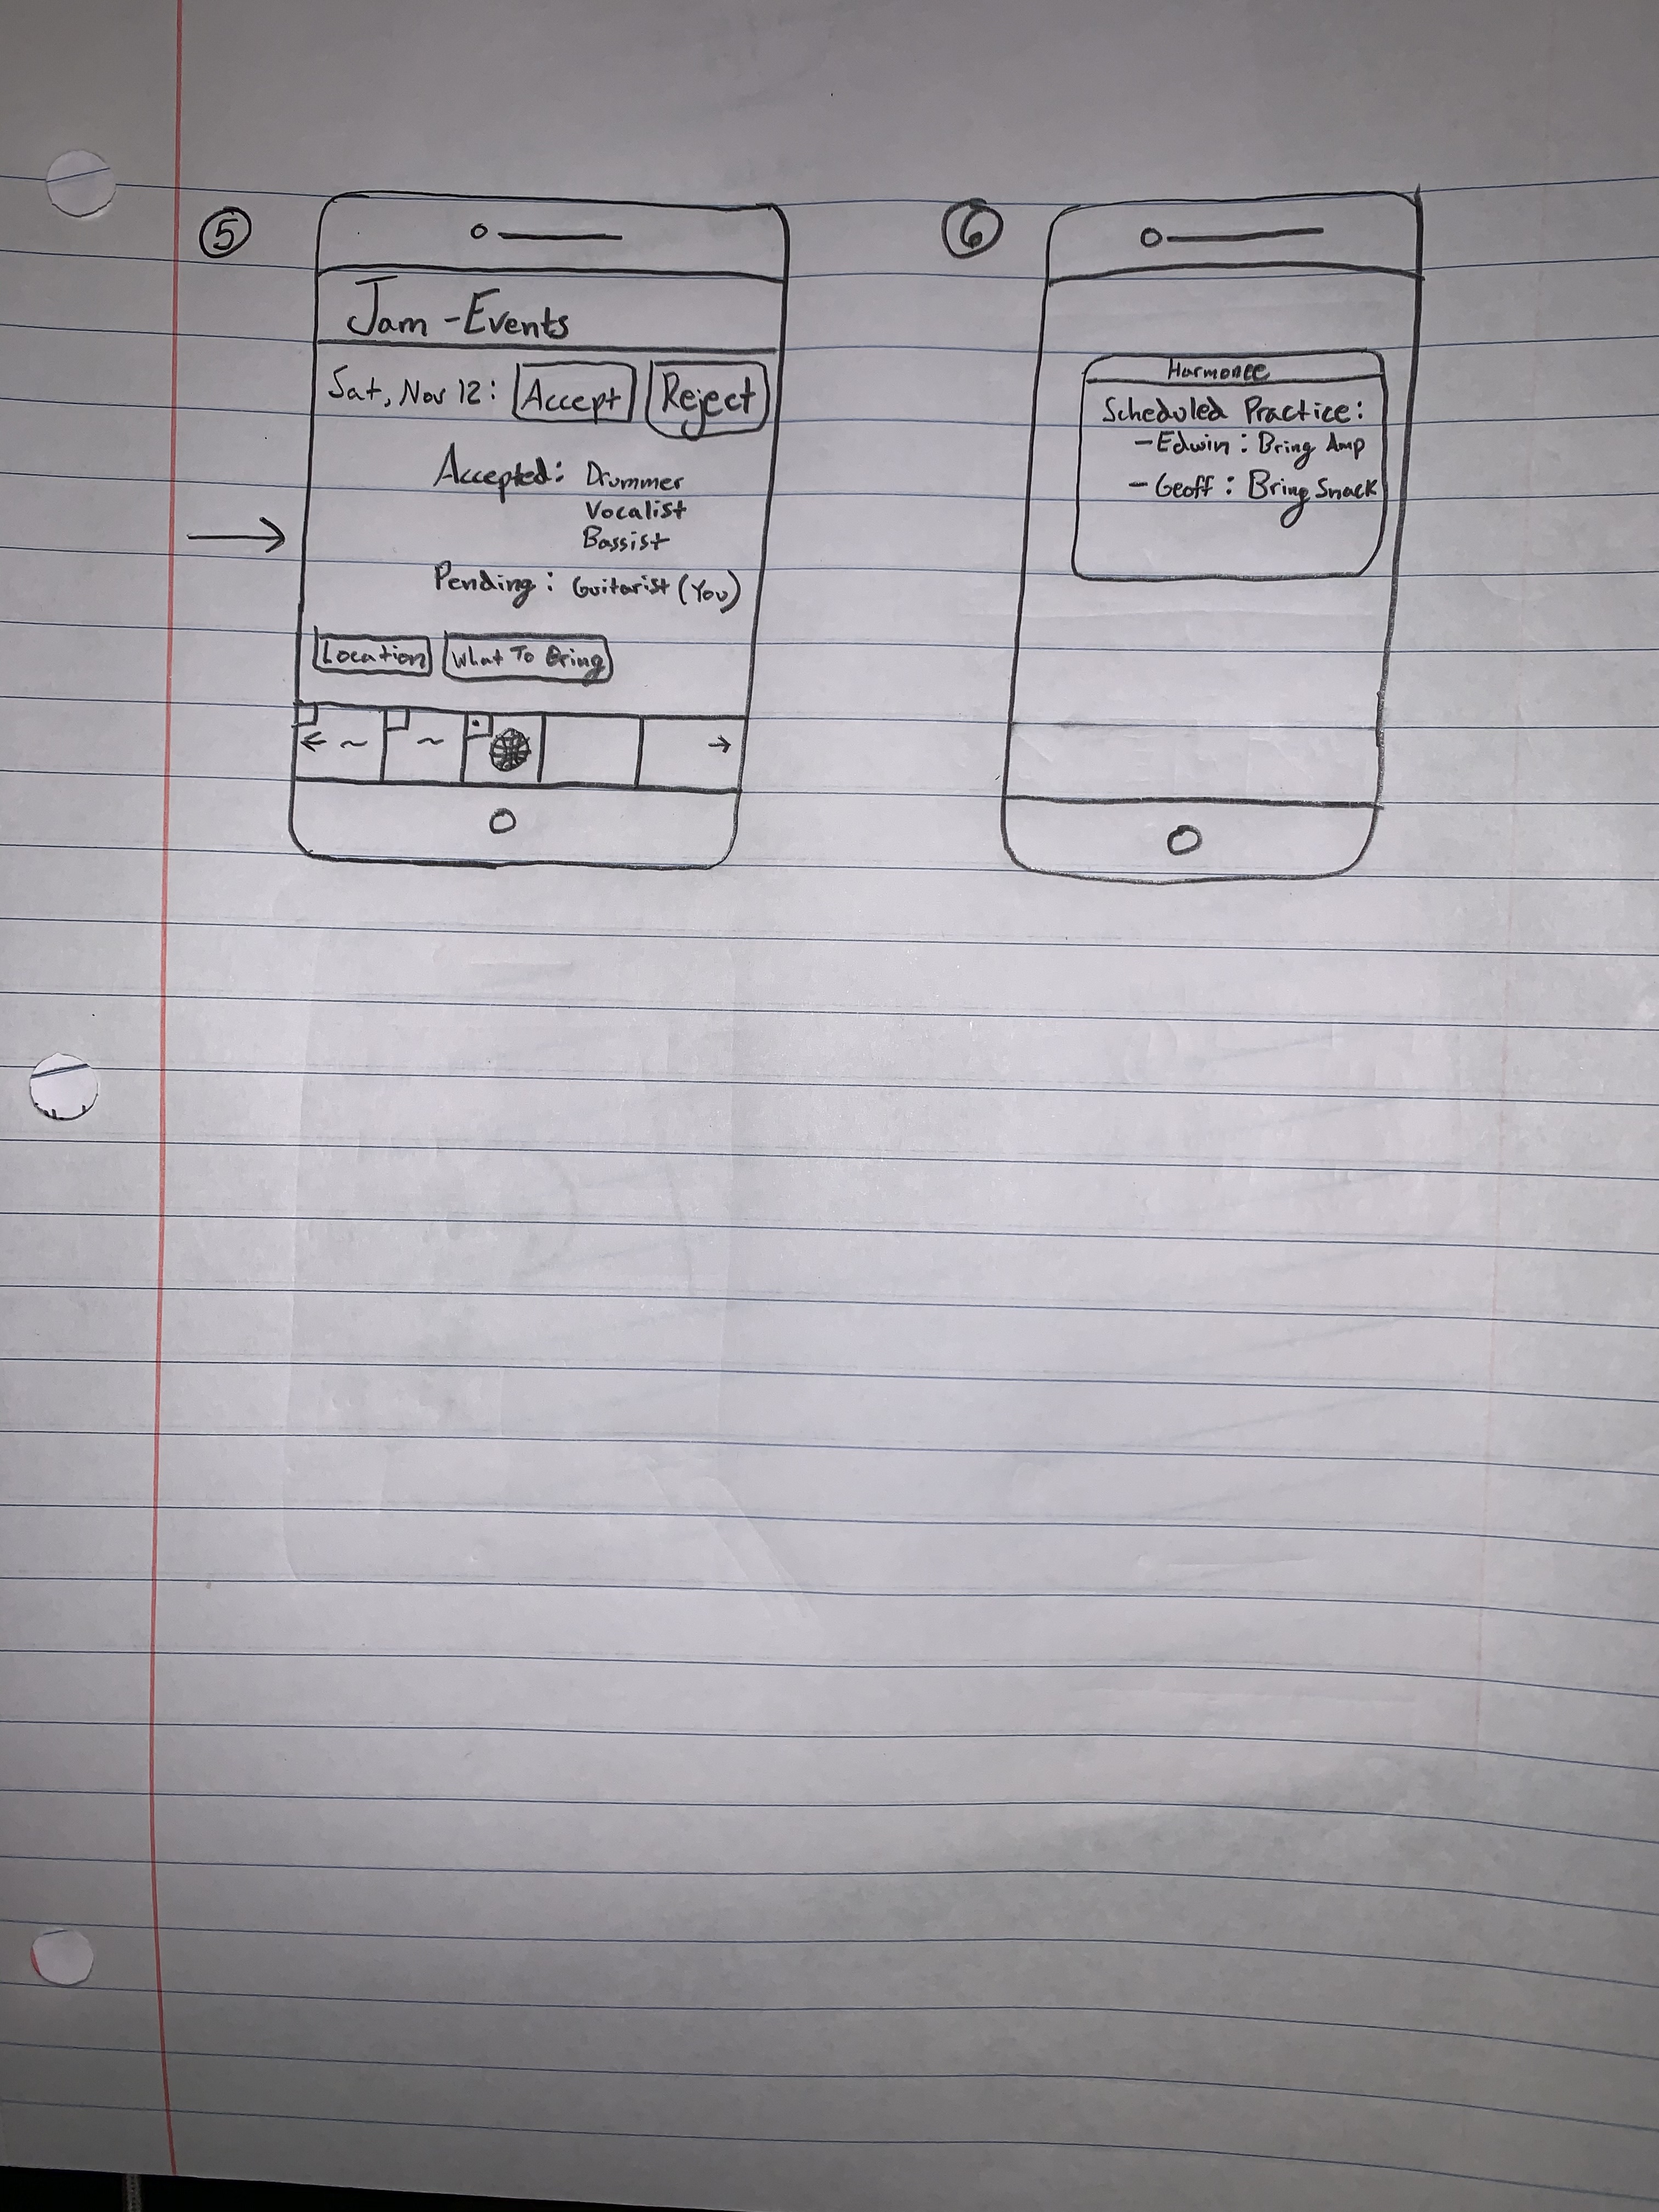 5
Jam - Events
Sat, Nov 12: Accept Reject
Accepted: Drummer
Vocalist
Bassist
Pending: Guitarist (You)
Location What To Bring
6
Harmonee
Scheduled Practice:
- Edwin: Bring Amp
- Geoff: Bring Snack